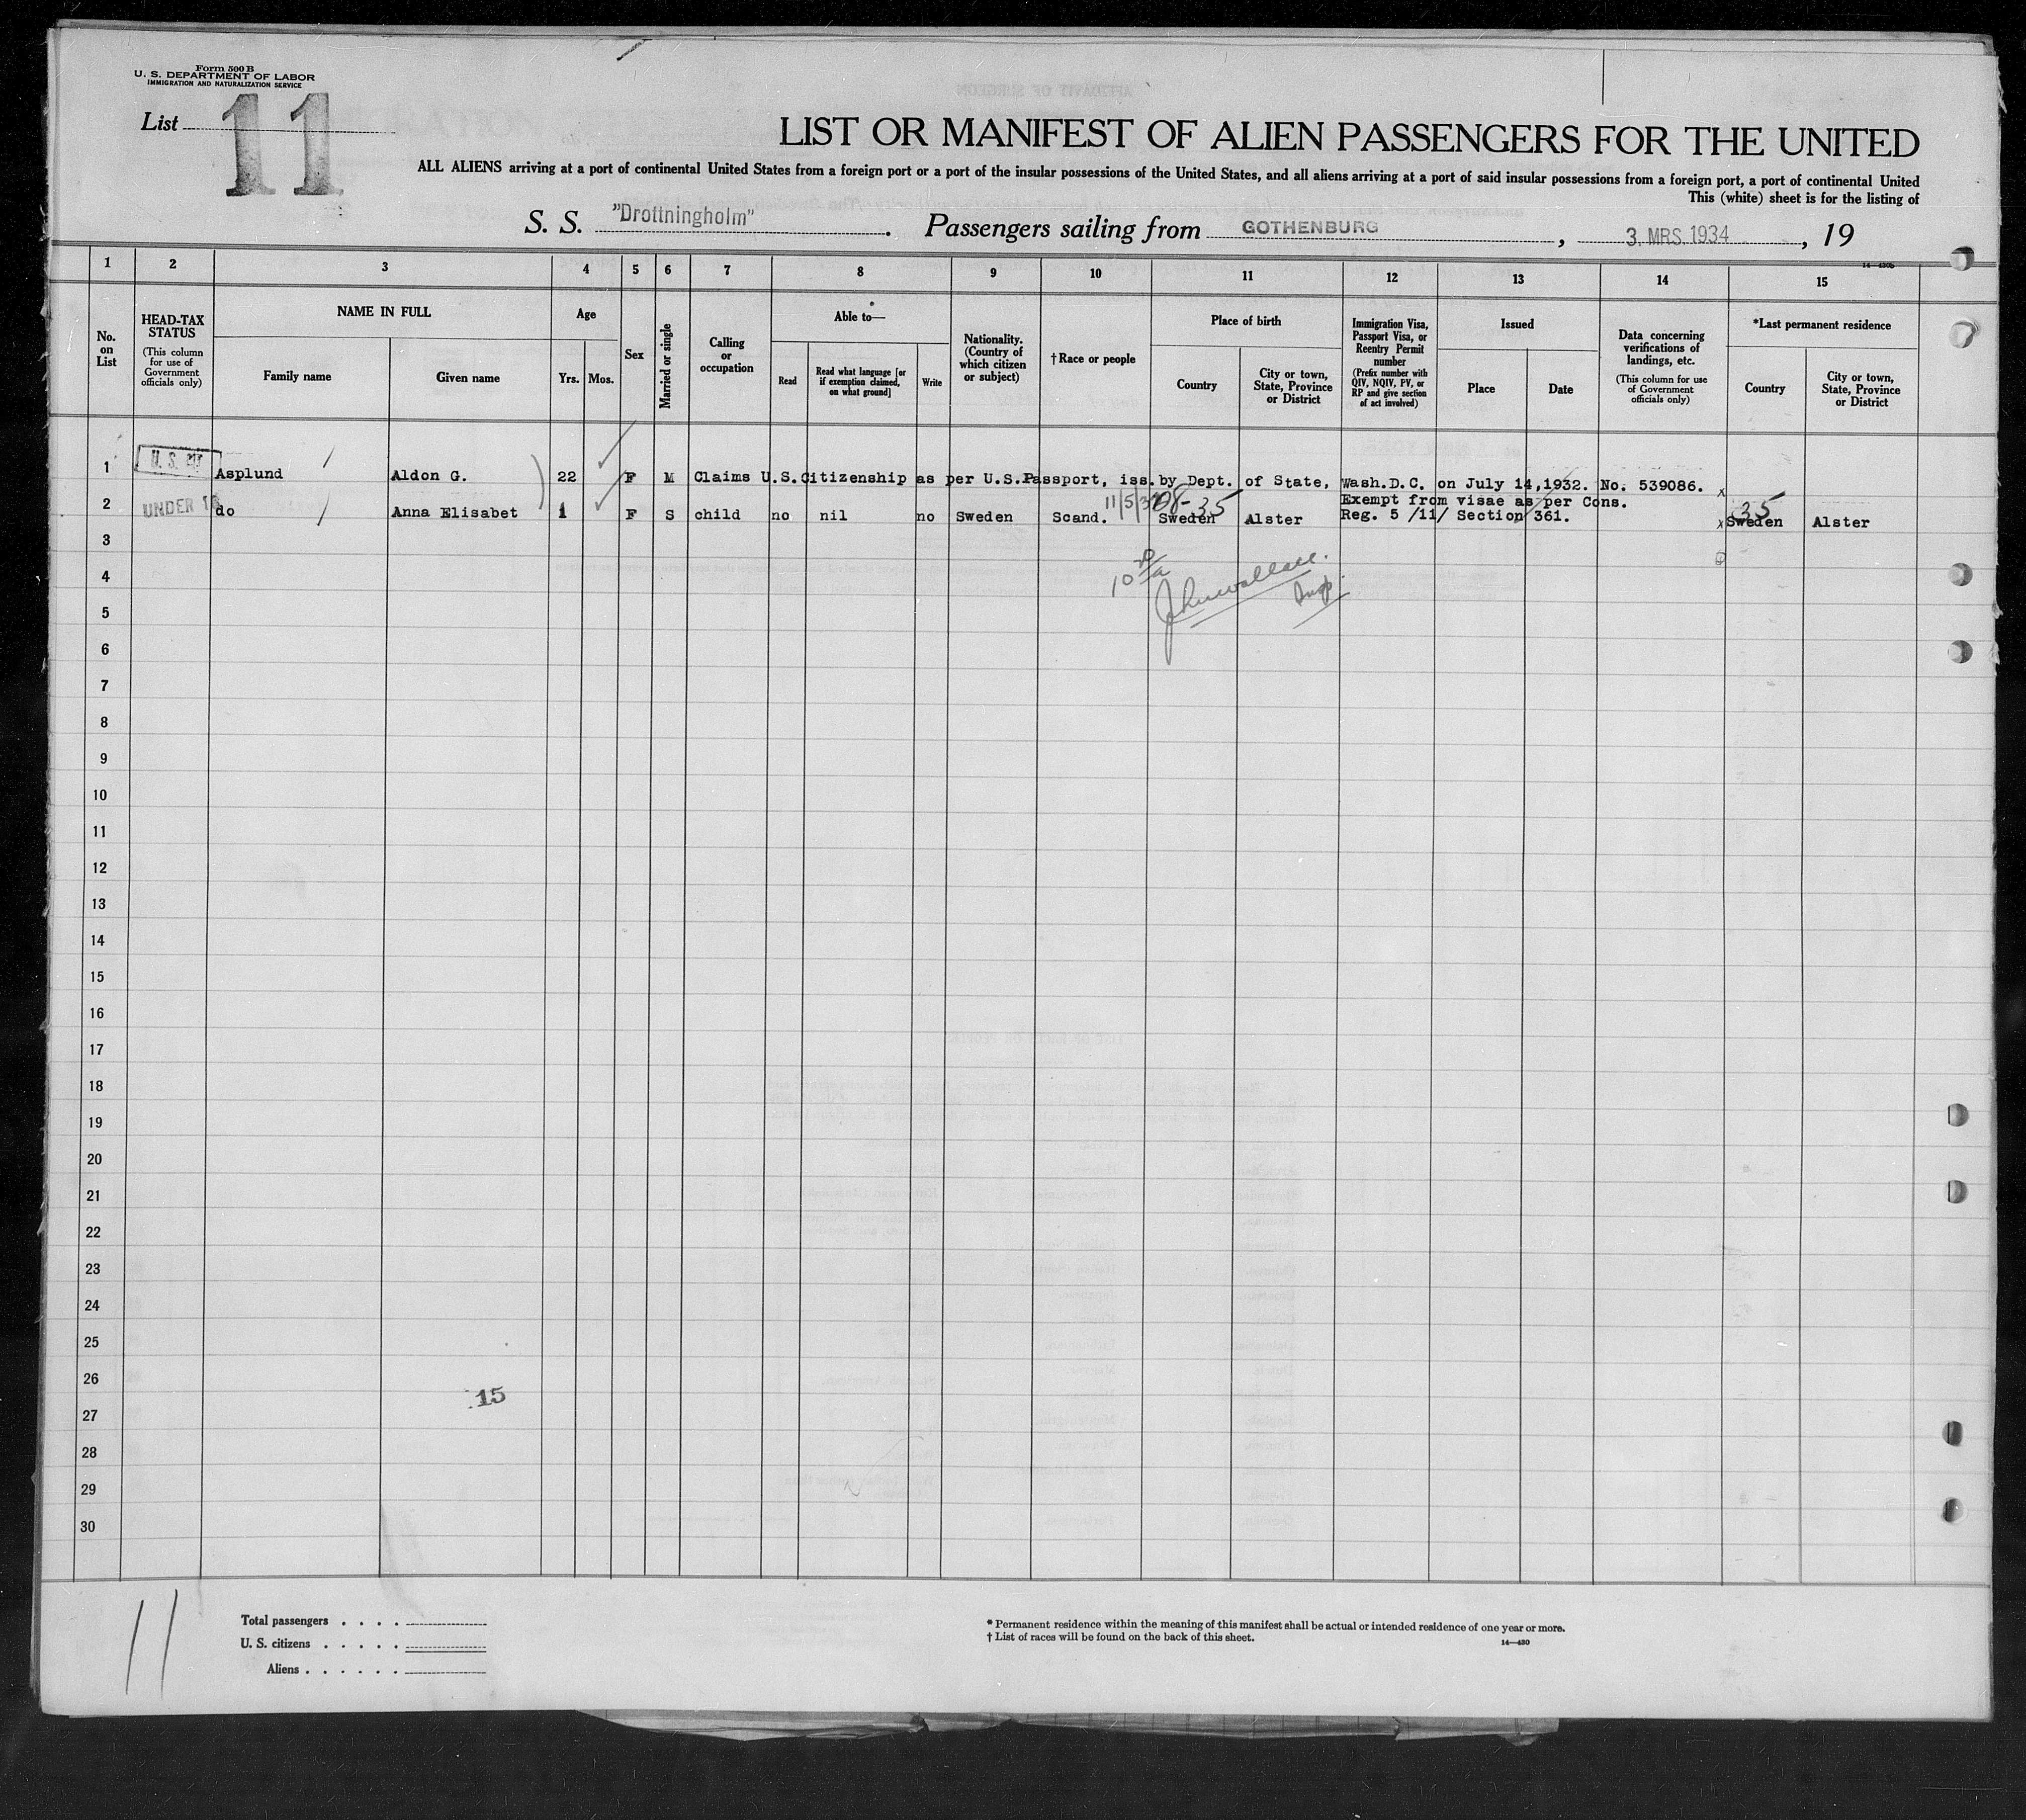 Form 500 B
U. S. DEPARTMENT OF LABOR
IMMIGRATION AND NATURALIZATION SERVICE
List 11
LIST OR MANIFEST OF ALIEN PASSENGERS FOR THE UNITED
ALL ALIENS arriving at a port of continental United States from a foreign port or a port of the insular possessions of the United States, and all aliens arriving at a port of said insular possessions from a foreign port, a port of continental United
This (white) sheet is for the listing of
S. S. "Drottningholm". Passengers sailing from GOTHENBURG, 3. MRS. 1934, 19
14—430b
1 2 3 4 5 6 7 8 9 10 11 12 13 14 15
No. on List
HEAD-TAX STATUS
(This column for use of Government officials only)
NAME IN FULL
Family name
Given name
Age
Yrs. Mos.
Sex
Married or single
Calling or occupation
Able to—*
Read
Read what language [or if exemption claimed, on what ground]
Write
Nationality. (Country of which citizen or subject)
†Race or people
Place of birth
Country
City or town, State, Province or District
Immigration Visa, Passport Visa, or Reentry Permit number
(Prefix number with QIV, NQIV, PV, or RP and give section of act involved)
Issued
Place
Date
Data concerning verifications of landings, etc.
(This column for use of Government officials only)
*Last permanent residence
Country
City or town, State, Province or District
1 U.S. Asplund Aldon G. 22 F M Claims U.S.Citizenship as per U.S.Passport, iss.by Dept. of State, Wash.D.C. on July 14,1932. No. 539086. x
Exempt from visae as per Cons.
2 UNDER 16 do Anna Elisabet 1 F S child no nil no Sweden Scand. Sweden Alster Reg. 5 /11/ Section 361. x Sweden Alster
11/5/3
08-35
35
3
4
5
6
7
8
9
10
11
12
13
14
15
16
17
18
19
20
21
22
23
24
25
26
15
27
28
29
30
11
Total passengers . . . .
U. S. citizens . . . . .
Aliens . . . . . .
* Permanent residence within the meaning of this manifest shall be actual or intended residence of one year or more.
† List of races will be found on the back of this sheet.
14—430